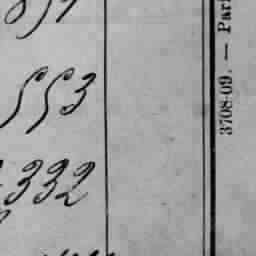 553
332
3708-09. — Par